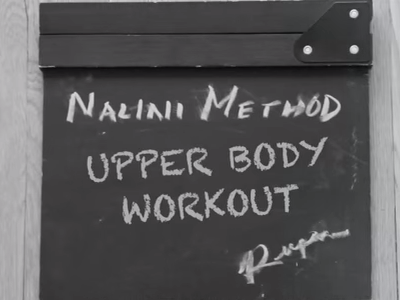 NALINI METHOD
UPPER BODY
WORKOUT